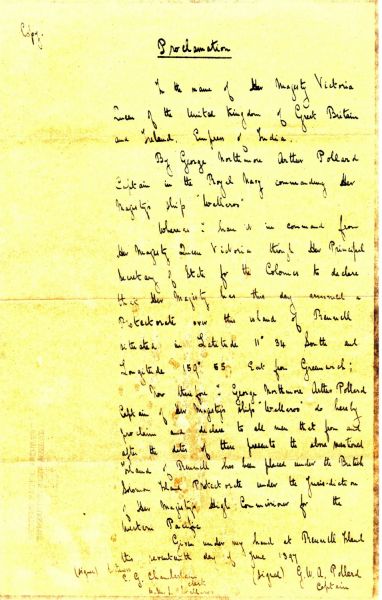 Copy.
Proclamation
In the name of Her Majesty Victoria
Queen of the United Kingdom of Great Britain
and Ireland, Empress of India.
By George Northmore Arthur Pollard
Captain in the Royal Navy commanding Her
Majesty's ship "Wallaroo"
Whereas I have it in command from
Her Majesty Queen Victoria through Her Principal
Secretary of State for the Colonies to declare
that Her Majesty has this day assumed a
Protectorate over this island of Rennell
situated in Latitude 11° 34 South and
Longitude 159° 55, East from Greenwich;
Now therefore I George Northmore Arthur Pollard
Captain of Her Majesty's Ship "Wallaroo" do hereby
proclaim and declare to all men that from and
after the date of these presents the above mentioned
Island of Rennell has been placed under the British
Solomon Island Protectorate under the Jurisdiction
of Her Majesty's High Commissioner for the
Western Pacific
Given under my hand at Rennell Island
this seventeenth day of June 1897
(signed) Witness
C. G. Chamberlain
(signed) G.W.A. Pollard
Captain